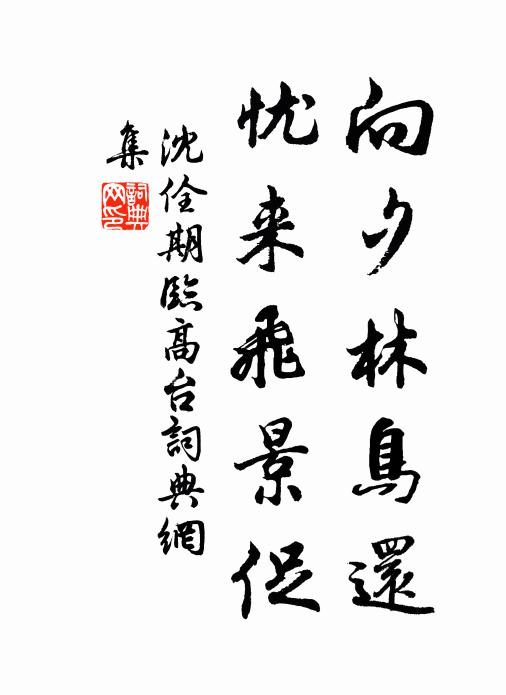 向夕林鳥還
忧来飛景促
沈佺期臨高台詞典網
集
詞典网印